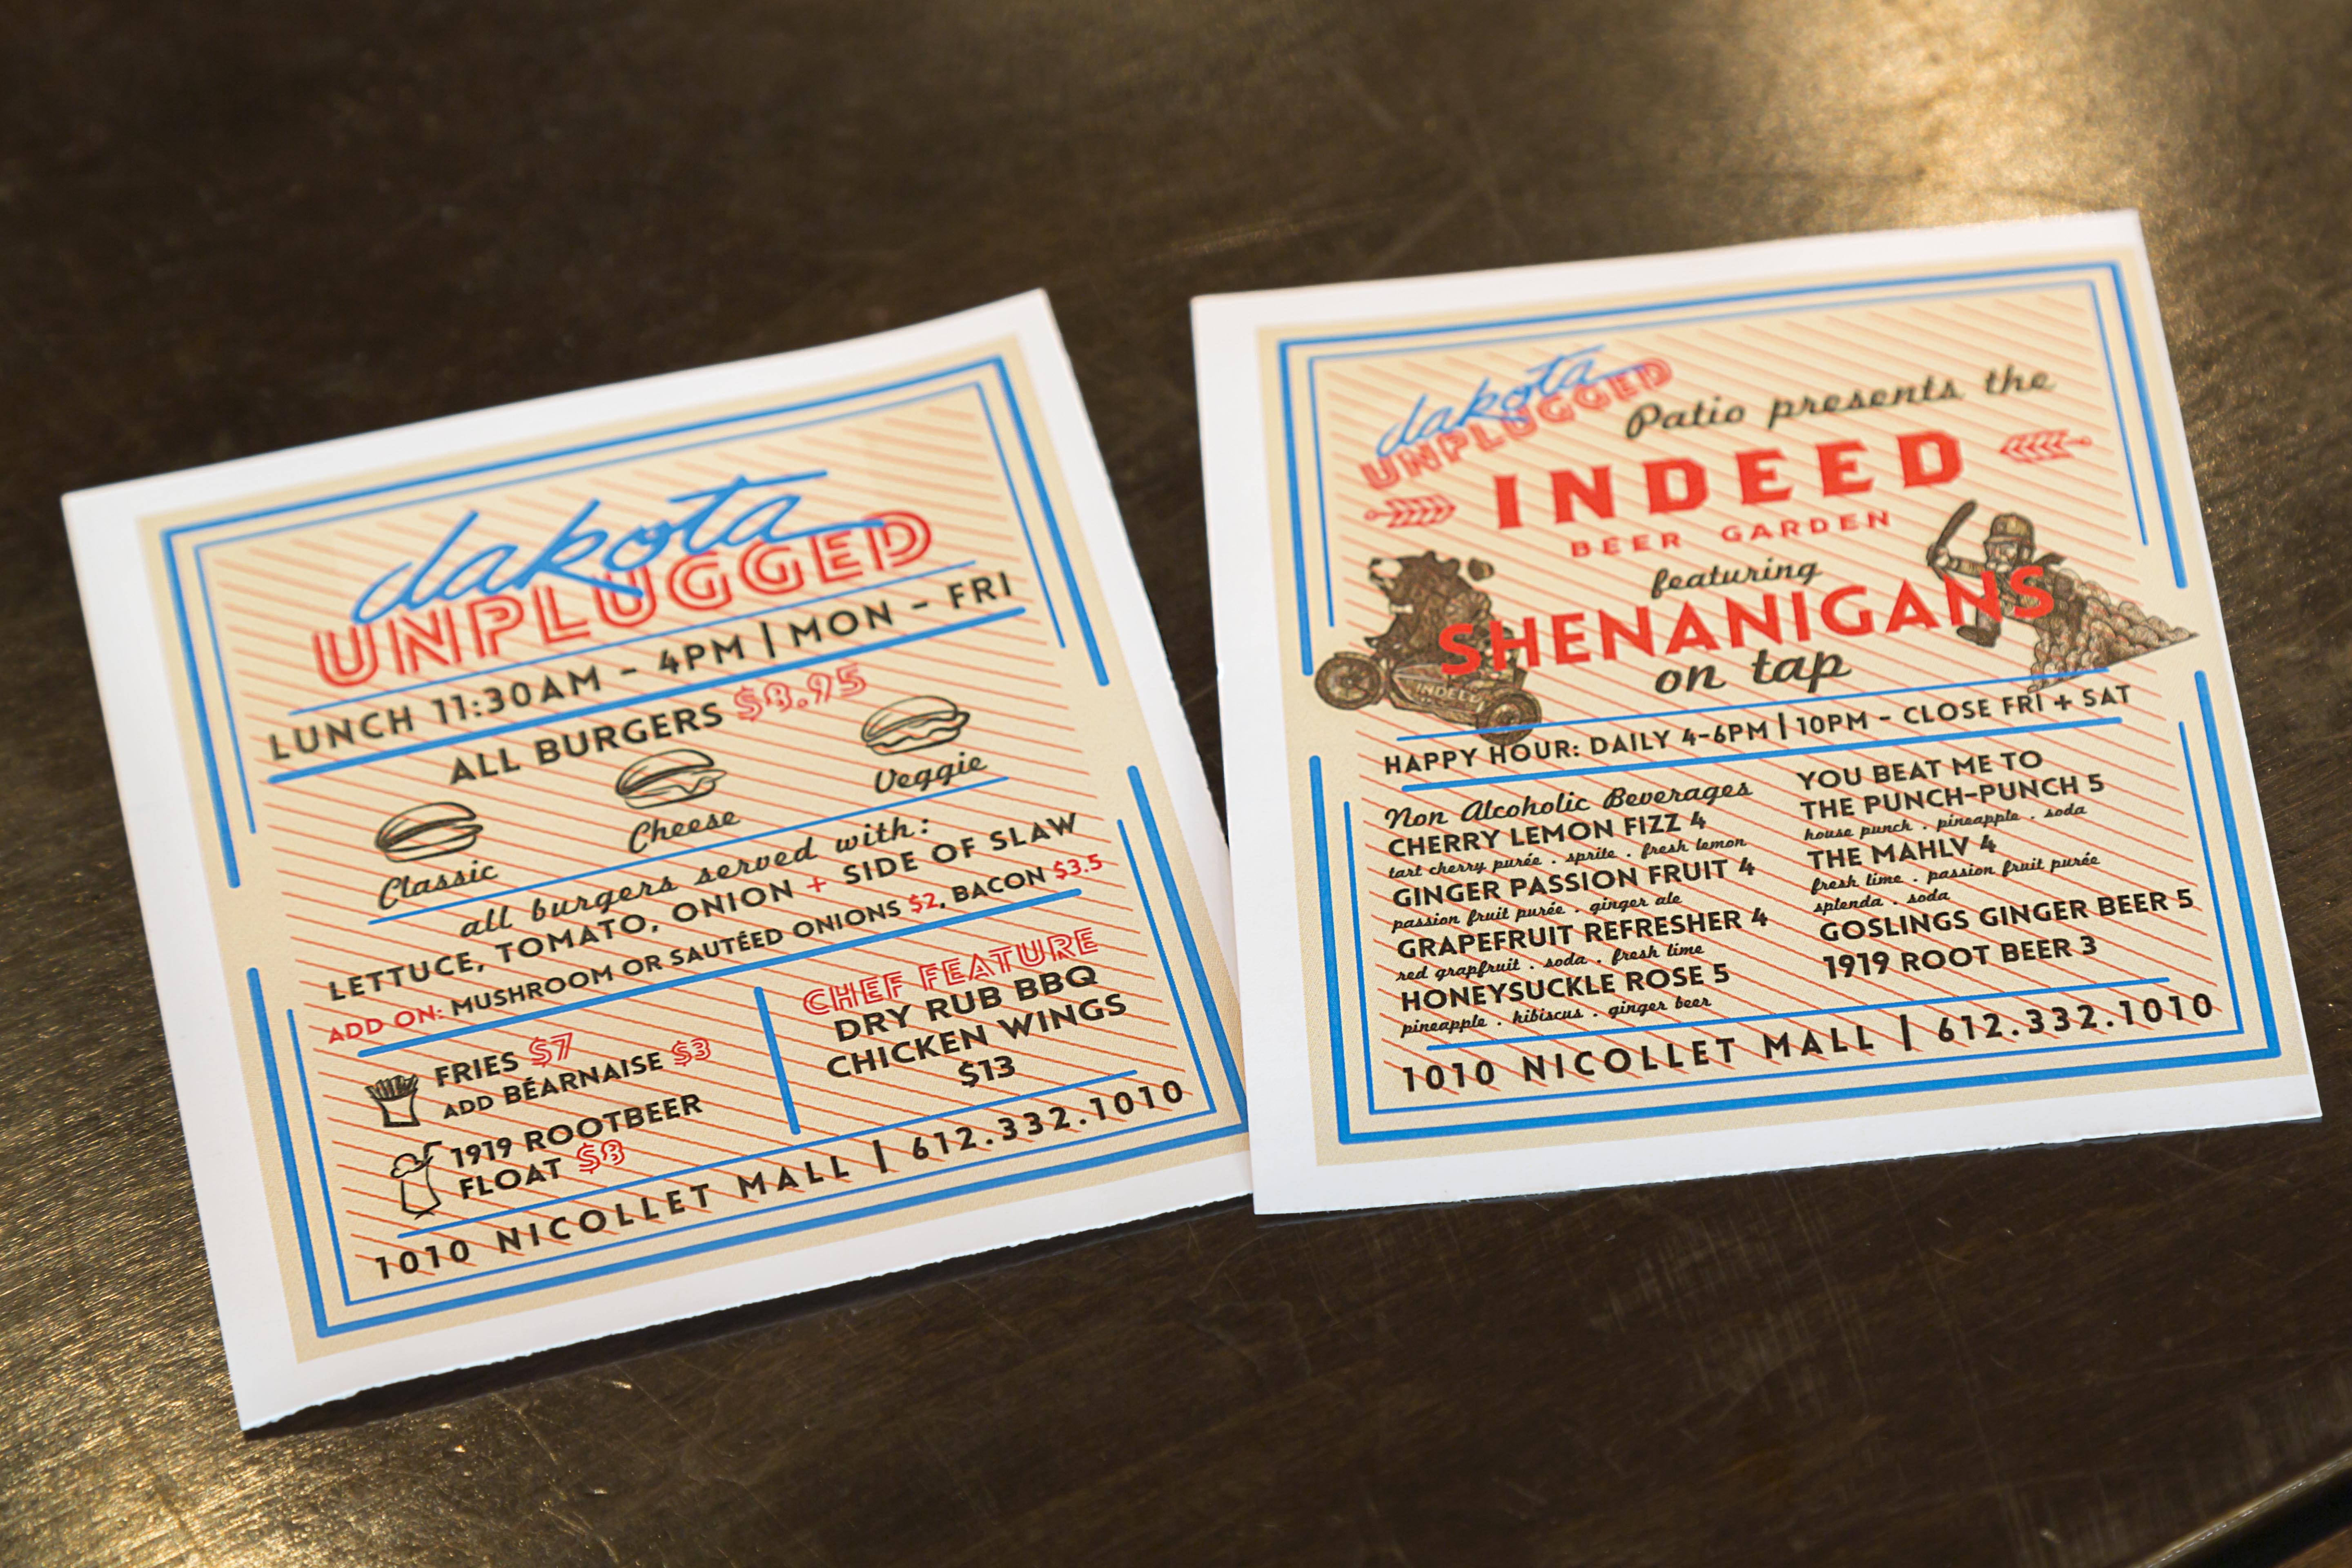 dakota
UNPLUGGED
LUNCH 11:30AM – 4PM | MON – FRI
ALL BURGERS $8.95
Classic
Cheese
Veggie
all burgers served with:
LETTUCE, TOMATO, ONION + SIDE OF SLAW
ADD ON: MUSHROOM OR SAUTÉED ONIONS $2, BACON $3.5
FRIES $7
ADD BÉARNAISE $3
1919 ROOTBEER
FLOAT $8
CHEF FEATURE
DRY RUB BBQ
CHICKEN WINGS
$13
1010 NICOLLET MALL | 612.332.1010
dakota
UNPLUGGED
Patio presents the
INDEED
BEER GARDEN
featuring
SHENANIGANS
on tap
INDEED
HAPPY HOUR: DAILY 4-6PM | 10PM – CLOSE FRI + SAT
Non Alcoholic Beverages
CHERRY LEMON FIZZ 4
tart cherry purée . sprite . fresh lemon
GINGER PASSION FRUIT 4
passion fruit purée . ginger ale
GRAPEFRUIT REFRESHER 4
red grapfruit . soda . fresh lime
HONEYSUCKLE ROSE 5
pineapple . hibiscus . ginger beer
YOU BEAT ME TO
THE PUNCH-PUNCH 5
house punch . pineapple . soda
THE MAHLV 4
fresh lime . passion fruit purée
splenda . soda
GOSLINGS GINGER BEER 5
1919 ROOT BEER 3
1010 NICOLLET MALL | 612.332.1010